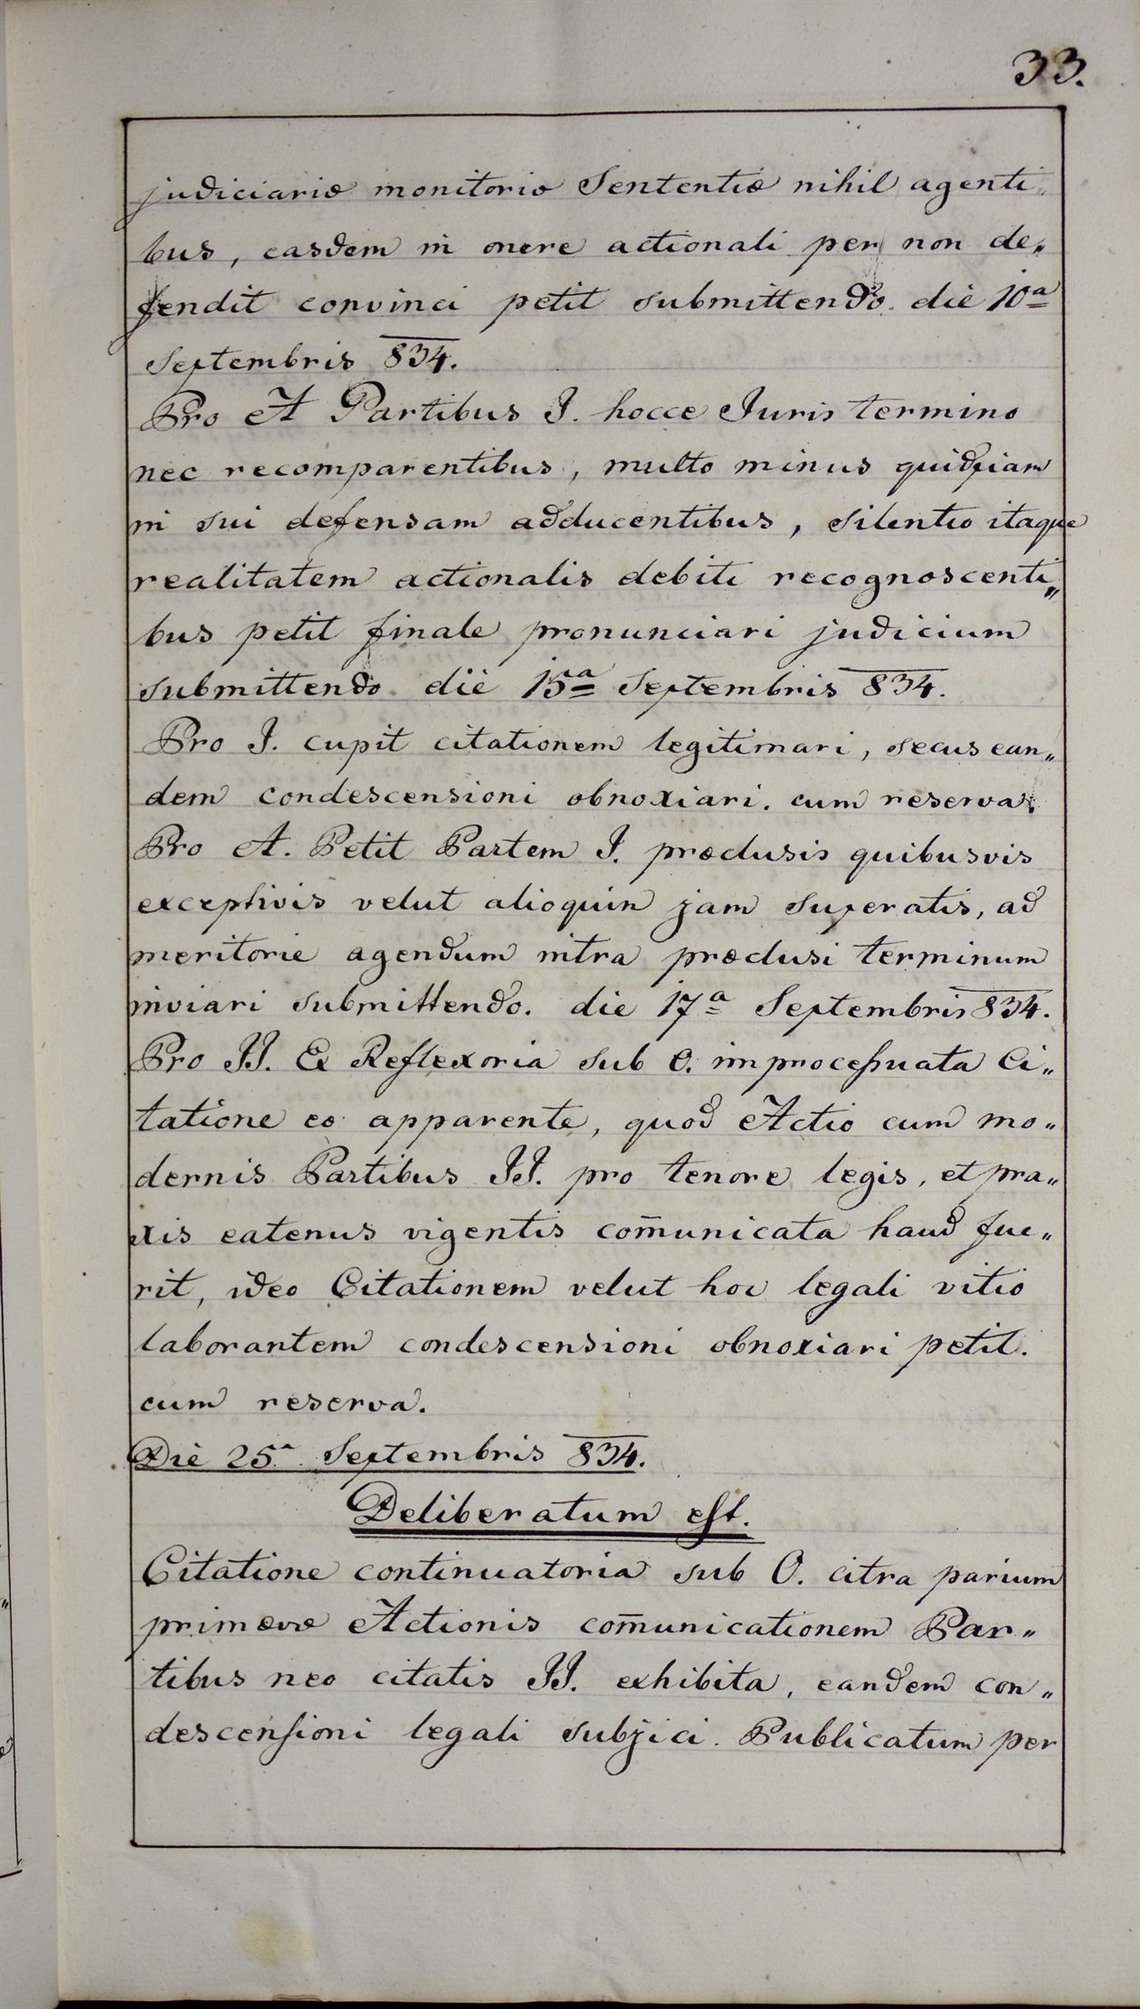 33.
judiciariæ monitoriæ Sententiæ nihil agenti„
bus, easdem in onere actionali per non de„
fendit convinci petit submittendo. die 10ª
Septembris 834.
Pro A Partibus I. hocce Juris termino
nec recomparentibus, multo minus quidpiam
in sui defensam adducentibus, silentio itaque
realitatem actionalis debiti recognoscenti„
bus petit finale pronunciari judicium
submittendo die 15ª Septembris 834.
Pro I. cupit citationem legitimari, secus ean„
dem condescensioni obnoxiari. cum reserva.
Pro A. Petit Partem I. præclusis quibusvis
exceptivis velut alioquin jam superatis, ad
meritorie agendum intra præclusi terminum
inviari submittendo. die 17ª Septembris 834.
Pro II. Ex Reflexoria sub O. improcessuata Ci„
tatione eo apparente, quod Actio cum mo„
dernis Partibus II. pro tenore legis, et pra„
xis eatenus vigentis com̄unicata haud fue„
rit, ideo Citationem velut hoc legali vitio
laborantem condescensioni obnoxiari petit.
cum reserva.
Die 25ª Septembris 834.
Deliberatum est.
Citatione continuatoria sub O. citra parium
primævæ Actionis com̄unicationem Par„
tibus neo citatis II. exhibita, eandem con„
descensioni legali subjici. Publicatum per